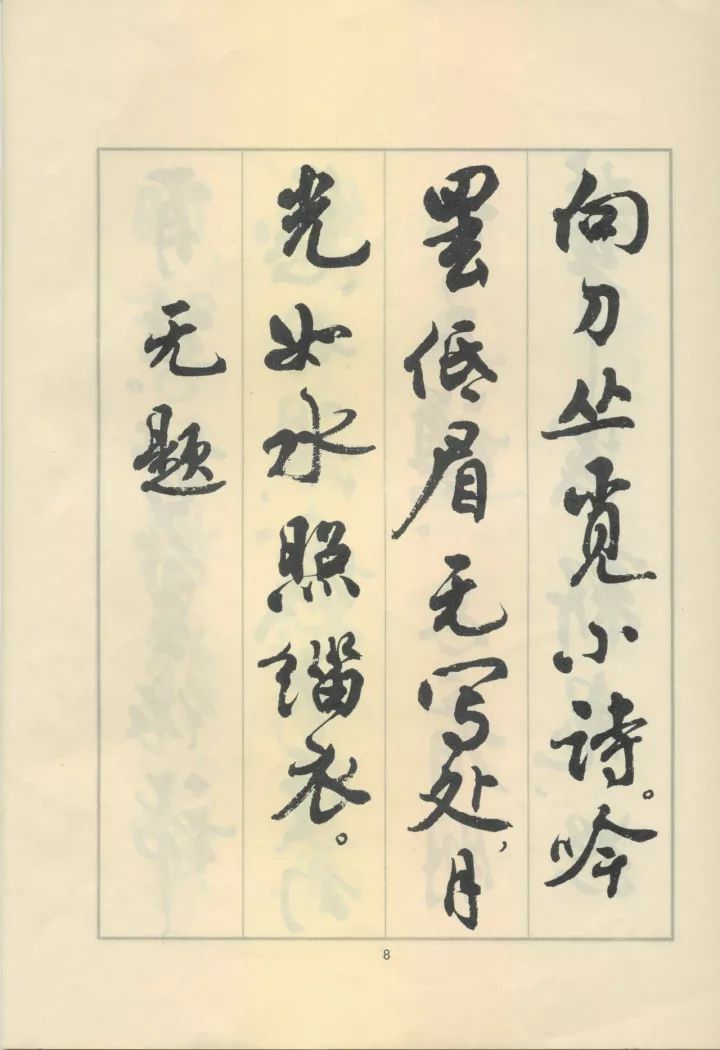 向刀丛觅小诗。吟
罢低眉无写处，月
光如水照缁衣。
无题
8